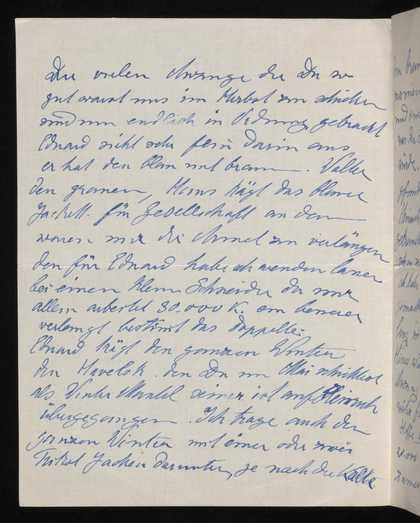 Die vielen Anzüge die Du so
gut warst uns im Herbst zu schicken
sind nun endlich in Ordnung gebracht
Eduard sieht sehr fein darin aus
er hat den blau mit braun. Valter
den grauen, Hans trägt das blaue
Jackett. für Gesellschaft an dem
waren nur die Ärmel zu verlängern
den für Eduard habe ich wenden lassen
bei einem kleinen Schneider der nur
allein arbeitet 30.000 K. ein besserer
verlangt bestimmt das doppelte.
Eduard trägt den ganzen Winter
den Havelok. den Du im Mai schicktest
als Winter Mantel seiner ist auf Heinrich
übergegangen. Ich trage auch den
ganzen Winter mit einer oder zwei
Trikot Jacken darunter, je nach der Kälte